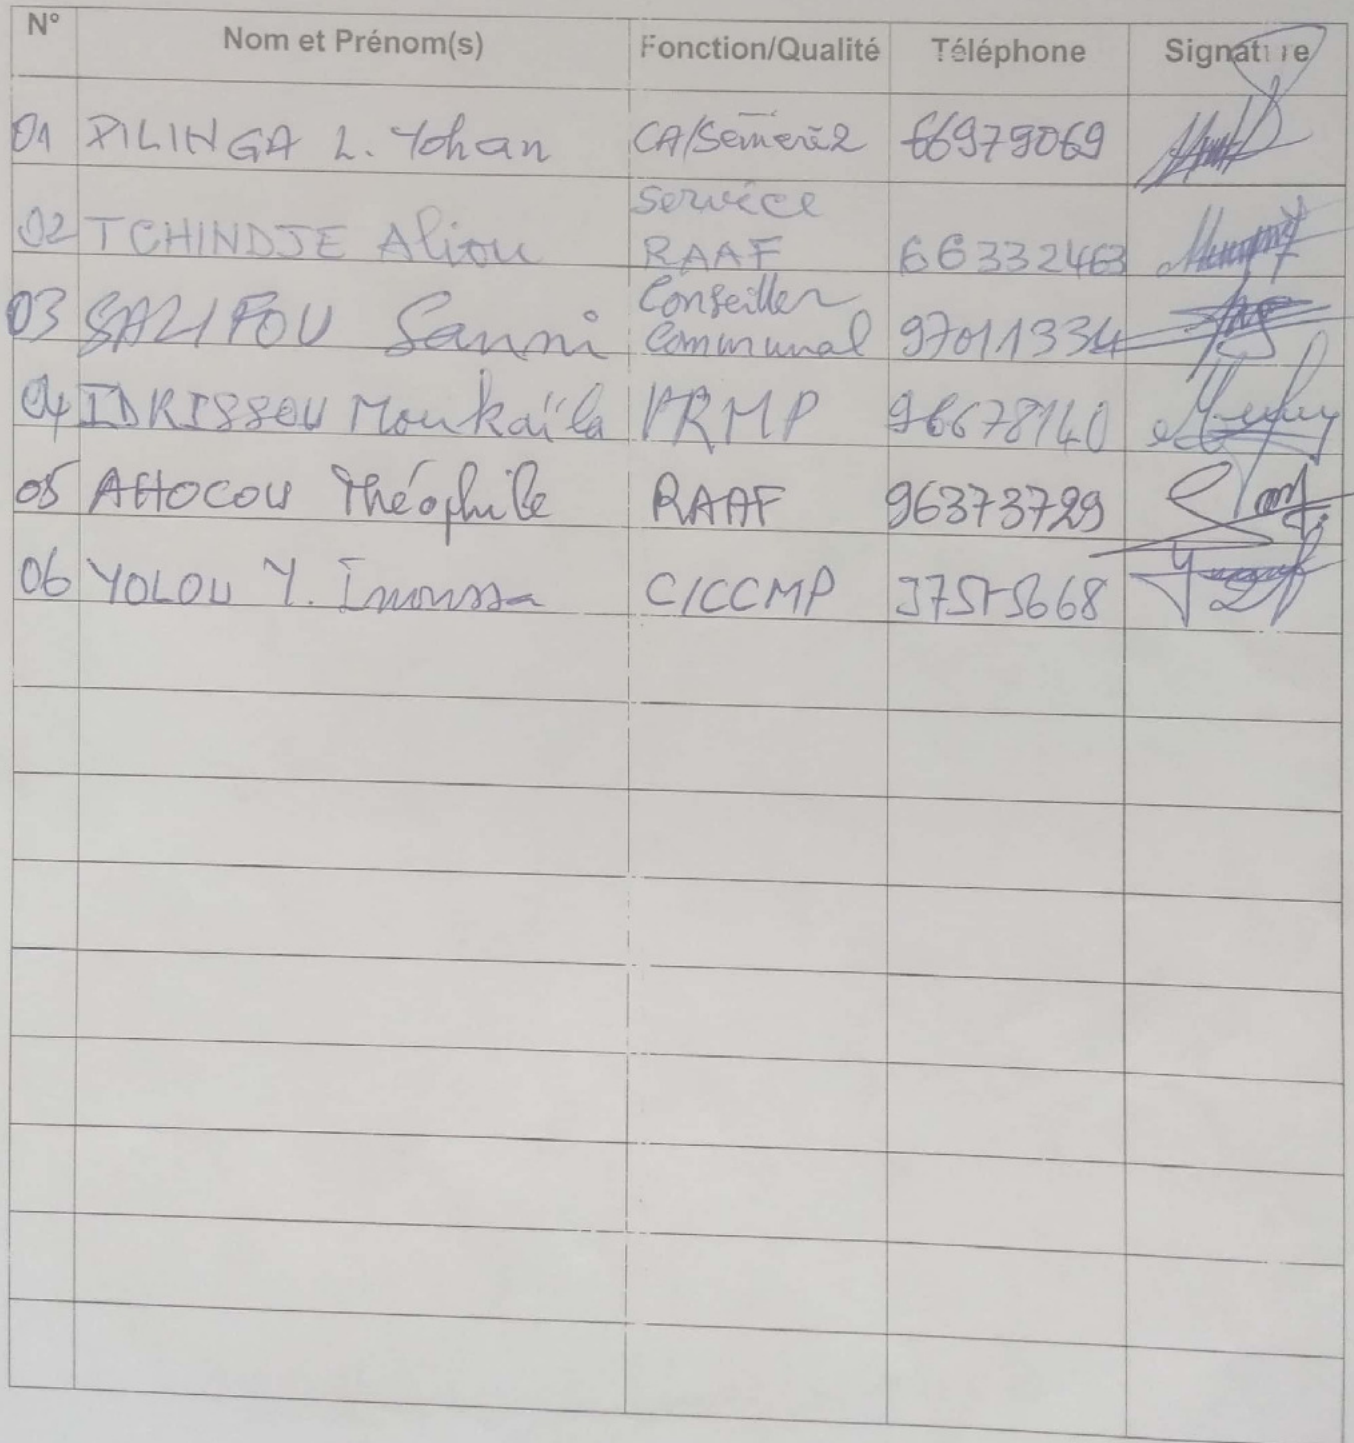 N° Nom et Prénom(s) Fonction/Qualité Téléphone Signature
01 PILINGA L. Yohan CA/Sèmèrè2 66979069
02 TCHINDJE Aliou Service RAAF 66332463
03 SALIFOU Sanni Conseiller Communal 97011334
04 IDRISSOU Moukaïla PRMP 96678140
05 AHOCOU Théophile RAAF 96373729
06 YOLOU Y. Inoussa C/CCMP 97575668